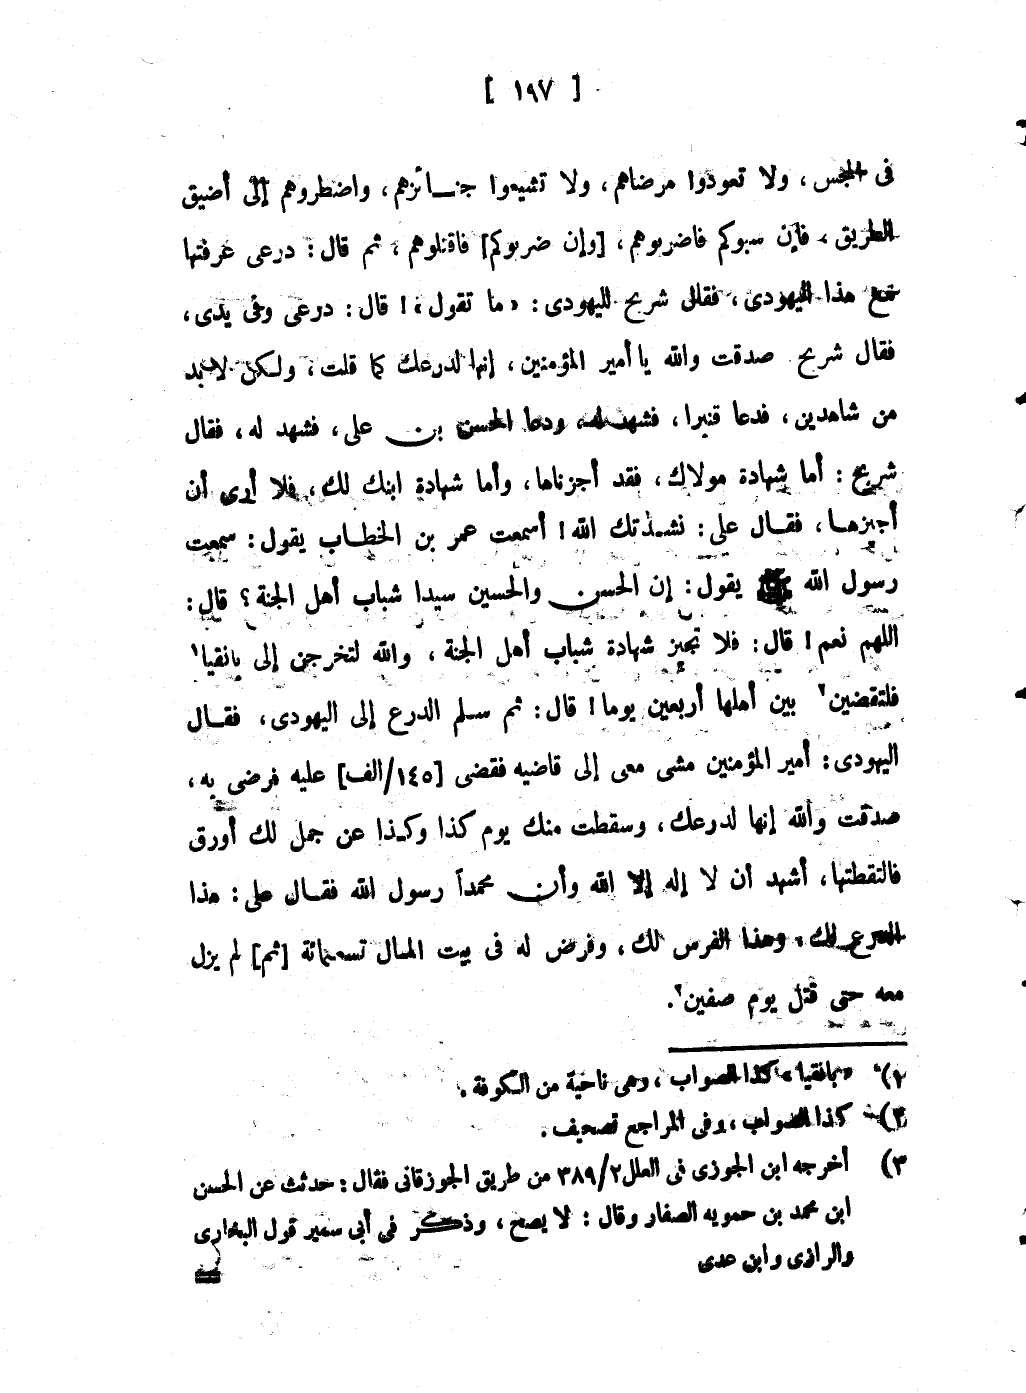 [ ١٩٧ ]
فى المجلس، ولا تعودوا مرضاهم، ولا تشيعوا جنـائزهم، واضطروهم إلى أضيق
الطريق، فإن سبوكم فاضربوهم، [وإن ضربوكم] فاقتلوهم، ثم قال: درعى عرفتها
مع هذا اليهودى، فقال شريح لليهودى: « ما تقول»! قال: درعى وفى يدى،
فقال شريح صدقت والله يا أمير المؤمنين، إنها لدرعك كما قلت، ولكن لا بد
من شاهدين، فدعا قنبرا، فشهد له، ودعا الحسن بن على، فشهد له، فقال
شريح: أما شهادة مولاك، فقد أجزناها، وأما شهادة ابنك لك، فلا أرى أن
أجيزهـا، فقـال على: نشـدتك الله! أسمعت عمر بن الخطـاب يقول: سمعت
رسول الله ﷺ يقول: إن الحسن والحسين سيدا شباب أهل الجنة؟ قال:
اللهم نعم! قال: فلا تجيز شهادة شباب أهل الجنة، والله لتخرجن إلى بانقيا١
فلتقضين٢ بين أهلها أربعين يوما! قال: ثم سـلم الدرع إلى اليهودى، فقـال
اليهودى: أمير المؤمنين مشى معى إلى قاضيه فقضى [١٤٥/الف] عليه فرضى به،
صدقت والله إنها لدرعك، وسقطت منك يوم كذا وكـذا عن جمل لك أورق
فالتقطتها، أشهد أن لا إله إلا الله وأن محمداً رسول الله فقـال على: هذا
الدرع لك، وهذا الفرس لك، وفرض له فى بيت المـال تسعمائة [ثم] لم يزل
معه حتى قتل يوم صفين٣.
«بانقيا» كذا الصواب، وهى ناحية من الكوفة.
كذا الصواب، وفى المراجع تصحيف.
٣) أخرجه ابن الجوزى فى العلل ٣٨٩/٢ من طريق الجوزقانى فقال: حدثت عن الحسن
ابن محمد بن حمويه الصفار وقال: لا يصح، وذكر فى أبى سمير قول البخارى
والرازى وابن عدى
=